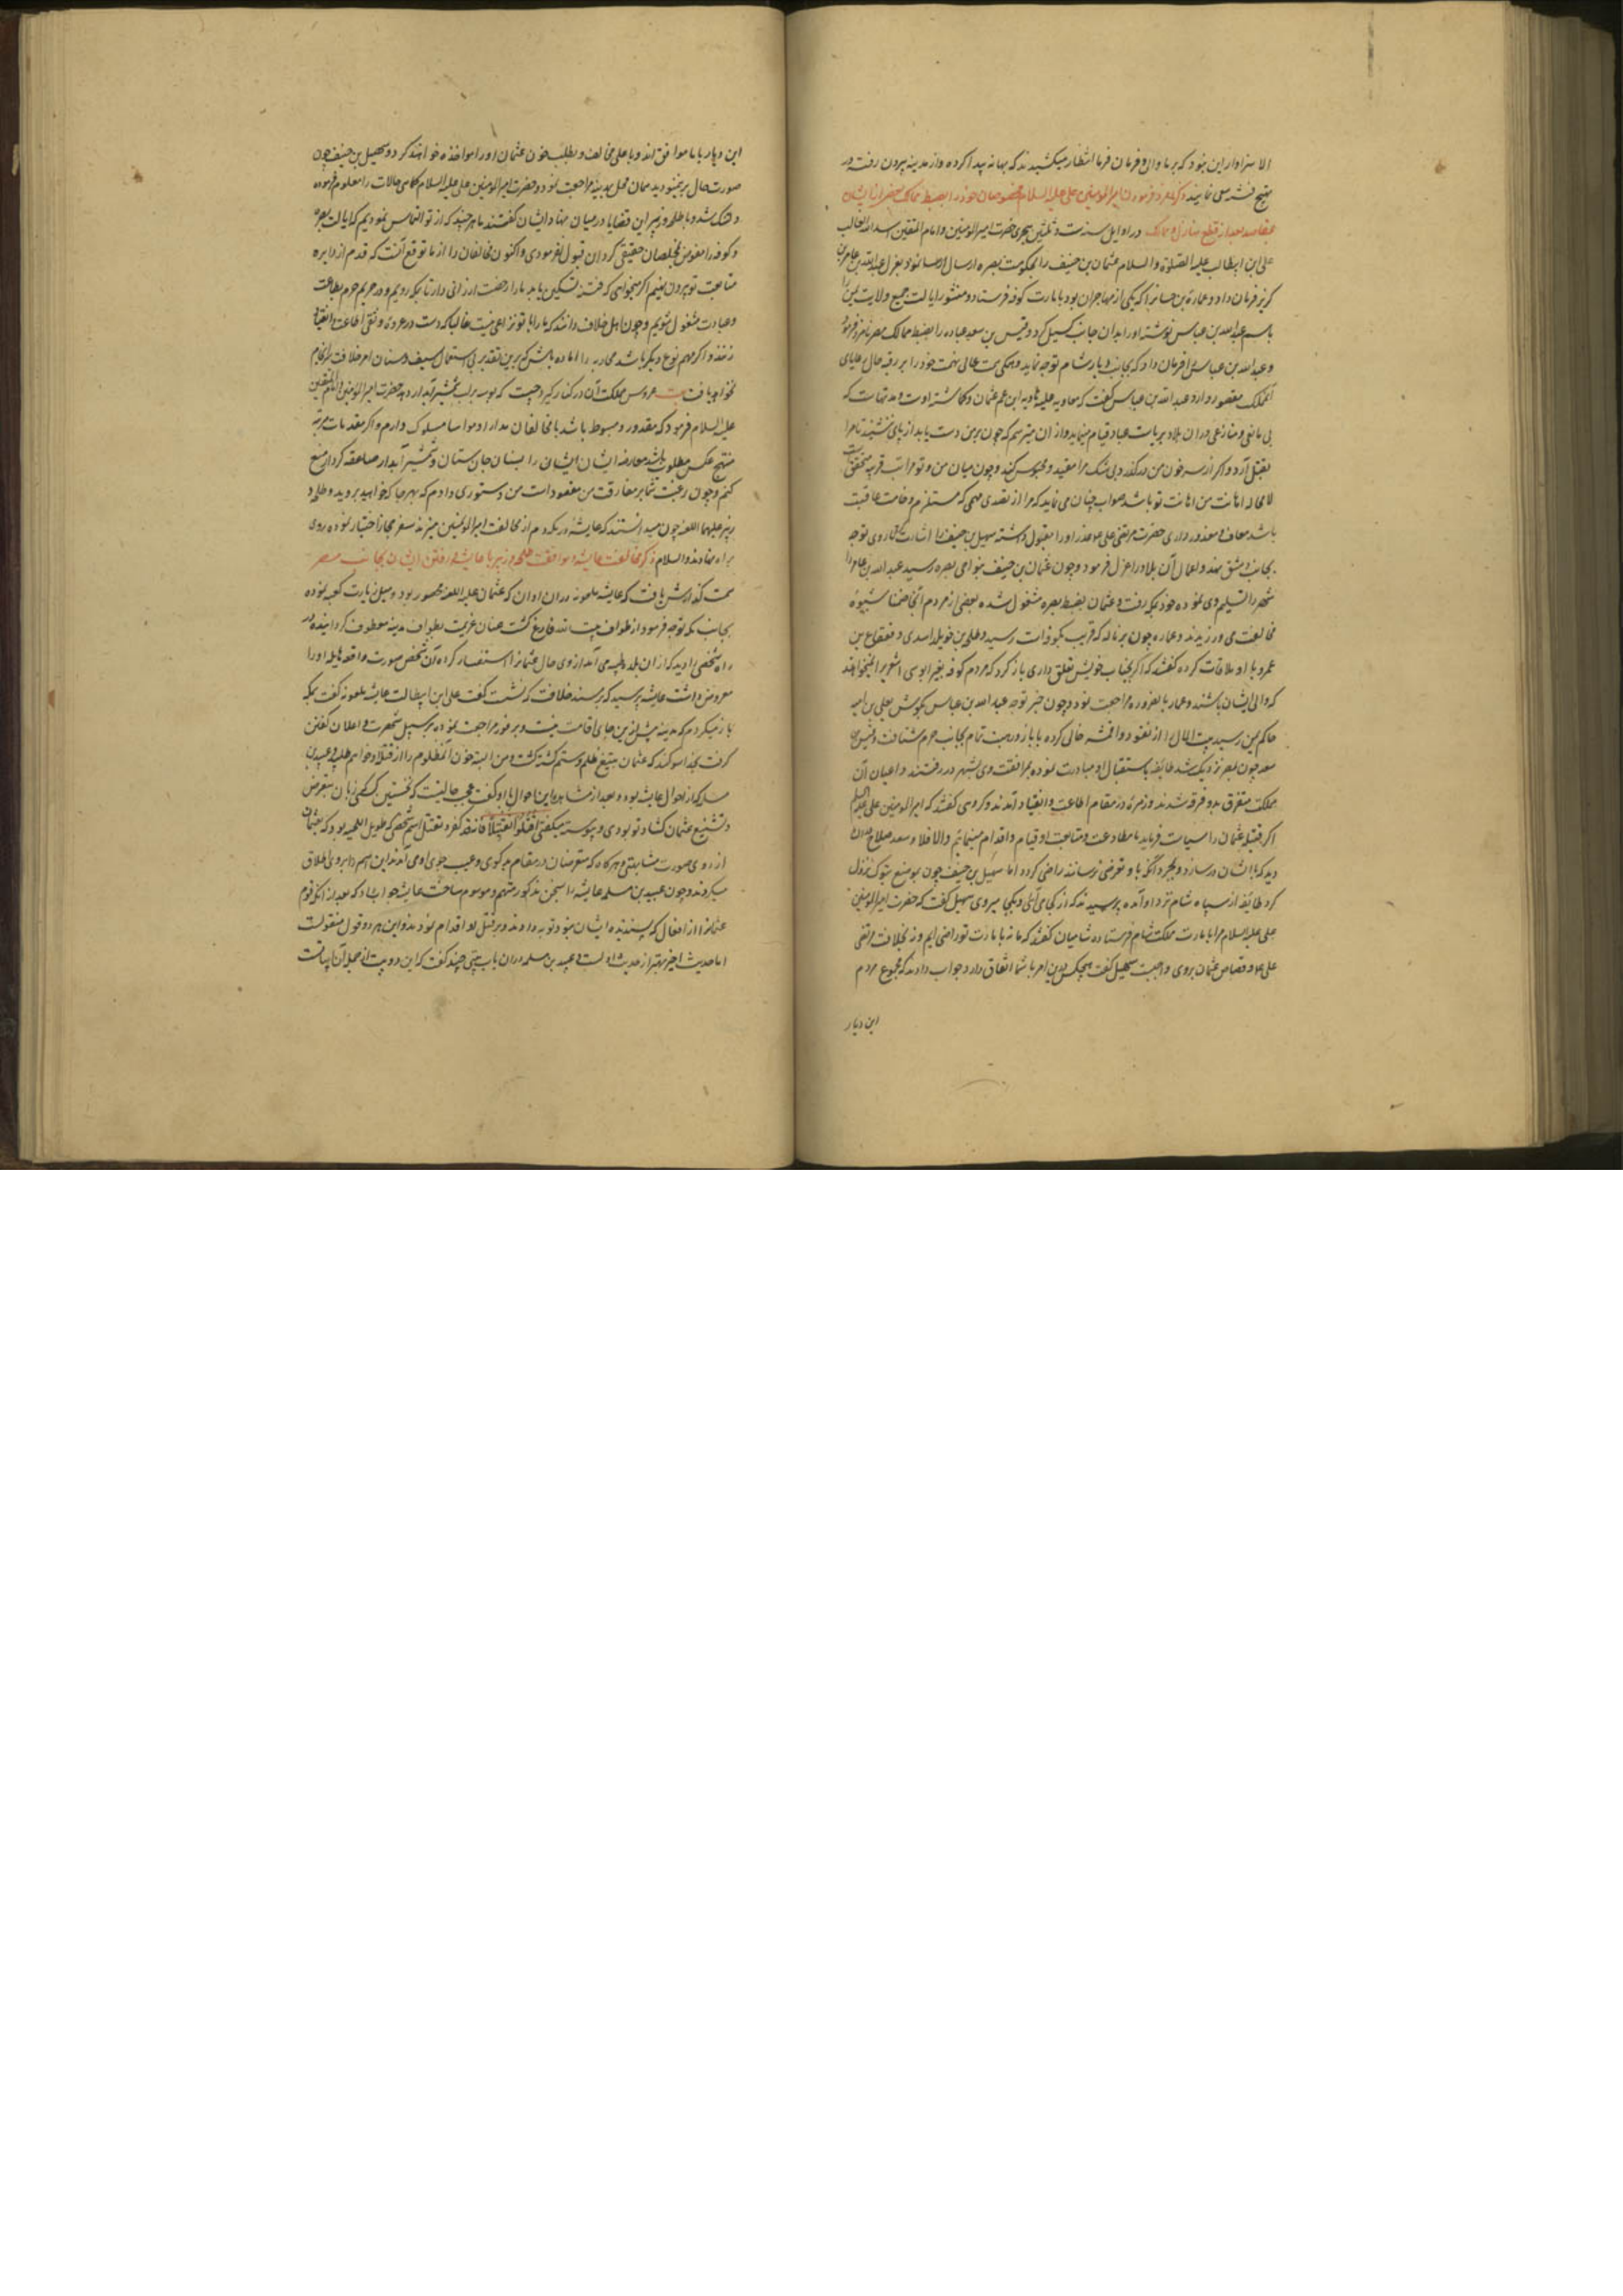 الا سزاوار این بود که بر ما والی و فرمان فرما انتظار میکشیدند که بهانه پیدا کرده و از مدینه بیرون رفته در
تهییج فتنه سعی نمایند ذکر نامزد فرمودن امیرالمومنین علی علیه السلام مخصوصان خود را بضبط ممالک
بمقاصد بعد از قطع منازل و ممالک در اوایل سنه ست و ثلثین هجری حضرت امیرالمومنین و امام المتقین اسدالله الغالب
علی ابن ابیطالب علیه الصلوة والسلام عثمان بن حنیف را بحکومت بصره ارسال نمود و بعزل عبدالله بن عامر بن
کریز فرمان داد و عمارة بن حسان را که یکی از مهاجران بود بامارت کوفه فرستاد و منشور ایالت جمیع ولایت یمن را
باسم عبدالله بن عباس نوشته او را بدان جانب کسیل کرد و قیس بن سعد عباده را بضبط ممالک مصر نامزد فرمود
و عبدالله بن عباس را فرمان داد که بجانب دیار شام توجه نماید و همکی همت عالی نهمت خود را بر رفه حال رعایای
آنملک مقصور دارد عبدالله بن عباس گفت که معاویه علیه الهاویه ابن عم عثمان و کماشته اوست و مدتهاست که
بی مانعی و منازعی در ان بلاد بریاست عباد قیام مینماید و از ان میترسم که چون بر من دست یابد از پای ننشیند تا مرا
بقتل آرد و اگر از سر خون من درگذرد بی شک مرا مقید و محبوس کند و چون میان من و تو مراتب قربت متحقق
لامحاله اهانت من اهانت تو باشد صواب چنان می نماید که مرا از تصدی مهمی که مستلزم وخامت عاقبت
باشد معاف و معذور داری حضرت مرتضی علی عم عذر او را مقبول داشته سهیل بن حنیف را اشارت کرد تا روی توجه
بجانب دمشق نهد و عمال آن بلاد را عزل فرمود و چون عثمان بن حنیف بنواحی بصره رسید عبدالله بن عامر
شهر را تسلیم وی نموده خود بمکه رفت و عثمان بضبط بصره مشغول شده بعضی از مردم آنجا شیوه
مخالفت می ورزیدند و عماره چون بزباله که قریب بکوفه است رسید و طلحه بن خویلد اسدی و قعقاع بن
عمرو با او ملاقات کرده گفتند که اگر بجناب خویش تعلق داری باز گرد که مردم کوفه بغیر ابوموسی اشعری را نمیخواهند
که والی ایشان باشد و عمار بالضروره مراجعت نمود و چون خبر توجه عبدالله بن عباس بگوش یعلی بن امیه
حاکم یمن رسید بیت المال را از نقود و اقمشه خالی کرده با تمام بجانب حرم شتافت و قیس بن
سعد چون بمصر نزدیک شد طایفه باستقبال او مبادرت نموده بمرافقت وی بشهر در رفتند و اعیان آن
مملکت متفرق بدو فرقه شدند و زمرة در مقام اطاعت و انقیاد آمدند و گروهی گفتند که امیرالمومنین علی علیه السلام
اگر قتله عثمان را سیاست فرماید ما مطاوعت و متابعت او قیام و اقدام مینمائیم والا فلا و سعد صلاح در ان
دید که با ایشان در سازد و بمجرد آنکه با و تعرضی نرسانند راضی کرده اما سهیل بن حنیف چون بموضع تبوک نزول
کرد طایفه از سپاه شام نزد او آمده پرسیدند که از کجا می آئی و بکجا میروی سهیل گفت که حضرت امیرالمومنین
علی علیه السلام مرا بامارت مملکت شام فرستاده شامیان گفتند که ما نه بامارت تو راضی ایم و نه بخلافت مرتضی
علی عم و قصاص عثمان بر وی واجبست سهیل گفت هیچکس بدین امر با شما اتفاق دارد جواب دادند که مجموع مردم
این دیار
این دیار با ما موافق اند و با علی مخالف و بطلب خون عثمان او را مواخذه خواهند کرد و سهیل بن حنیف چون
صورت حال بر ینمنوال دید همان محل بمدینه مراجعت نمود و حضرت امیرالمومنین علی علیه السلام کماهی حالات را معلوم فرموده
دلتنک شد و با طلحه و زبیر این قضایا در میان نهاد ایشان گفتند ما هر چند که از تو التماس نمودیم که ایالت بصره
و کوفه را مفوض بمخلصان حقیقی گردان قبول نفرمودی و اکنون مخالفان را از ما توقع آنست که قدم از دایره
متابعت تو بیرون نهیم اگر میخواهی که فتنه تسکین یابد ما را رخصت ارزانی دار تا بمکه رویم و در حریم حرم بطاعت
و عبادت مشغول شویم و چون اهل خلاف دانند که ما را با تو نزاعی نیست غالبا که دست در عروه وثقی اطاعت و انقیاد
زنند و اگر مهم نوع دیگر باشد محاربه را اماده باش که برین تقدیر بی استعمال سیف و سنان امر خلافت سرانجام
نخواهد یافت بیت عروس مملکت آن در کنار گیرد چست که بوسه بر لب شمشیر آبدار دهد حضرت امیرالمومنین و امام المتقین
علیه السلام فرمود که مقدور و مبسوط باشد با مخالفان مدارا و مواسا مسلوک دارم و اگر مقدمات مرتبه
منتج عکس مطلوب باشد معارضه ایشان را بسنان جان ستان و شمشیر آبدار صاعقه کردار منع
کنم و چون رغبت شما بر مفارقت من مقصود است من دستوری دادم که بهر جا که خواهید بروید و طلحه و
زبیر علیهما اللعنه چون میدانستند که عایشه در مکه دم از مخالفت امیرالمومنین میزند سفر حجاز اختیار نموده روی
براه نهادند والسلام ذکر مخالفت عایشه و موافقت طلحه و زبیر با عایشه و رفتن ایشان بجانب بصره
سمت گذارش یافت که عایشه ملعونه در ان اوان که عثمان علیه اللعنه محصور بود و میل زیارت کعبه نموده
بجانب مکه توجه فرمود از طواف بیت الله فارغ گشت عنان عزیمت بطواف مدینه معطوف گردانیده در
راه شخصی را دید که از ان بلده طیبه می آمد از وی حال عثمان استفسار کرد آن شخص صورت واقعه هایله او را
معروض داشت عایشه پرسید که بر مسند خلافت که نشست گفت علی ابن ابیطالب عایشه ملعونه گفت بمکه
باز میگردم که مدینه پیش ازین جای اقامت نیست و بر فور مراجعت نموده بر سبیل شهرت و اعلان گفتن
گرفت بخدا سوگند که عثمان بتیغ ظلم و ستم کشته گشت و من البته خون آنمظلوم را از قتله او خواهم طلبید و عبید بن
سلمه که از اخوال عایشه بود و بعد از مشاهده این احوال با او گفت عجب حالیست که نخستین کسی که زبان بتعرض
و تشنیع عثمان گشاد تو بودی و پیوسته میگفتی اقتلوا نعثلا فانه قد کفر و نعثل اسم شخصی که طویل اللحیه بود که بعثمان
از روی صورت مشابهتی و هرگاه که متعرضان در مقام بدگوئی و عیب جوئی او می آمدند این اسم را بروی اطلاق
میکردند و چون عبید بن سلمه عایشه را بسخن مذکور متهم و موسوم ساخت عایشه جواب داد که بعد از آنکه قوم
عثمان را از افعال که پسندیده ایشان نبود توبه دادند و بر قتل او اقدام نمودند و این هر دو قول منقولست
اما حدیث اخیر بهتر از حدیث اولست و عبید بن سلمه در ان باب بیتی چند گفت که این دو بیت از جمله آن ابیاتست